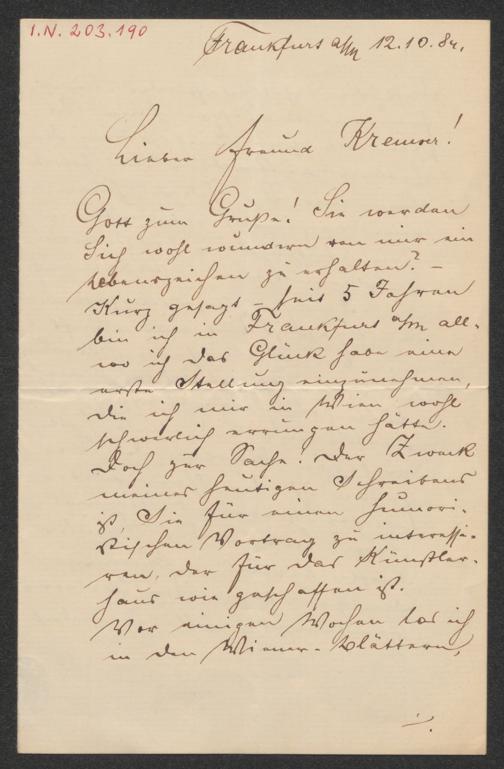 I.N. 203.190
Frankfurt a/M 12.10.84.
Lieber Freund Kremser!
Gott zum Gruße! Sie werden
Sich wohl wundern von mir ein
Lebenszeichen zu erhalten? –
Kurz gesagt – seit 5 Jahren
bin ich in Frankfurt a/M all-
wo ich das Glück habe eine
erste Stellung einzunehmen,
die ich mir in Wien wohl
schwerlich errungen hätte.
Doch zur Sache! Der Zweck
meines heutigen Schreibens
ist, Sie für einen humori-
stischen Vortrag zu interessi-
ren, der für das Künstler-
haus wie geschaffen ist.
Vor einigen Wochen las ich
in den Wiener-Blättern,